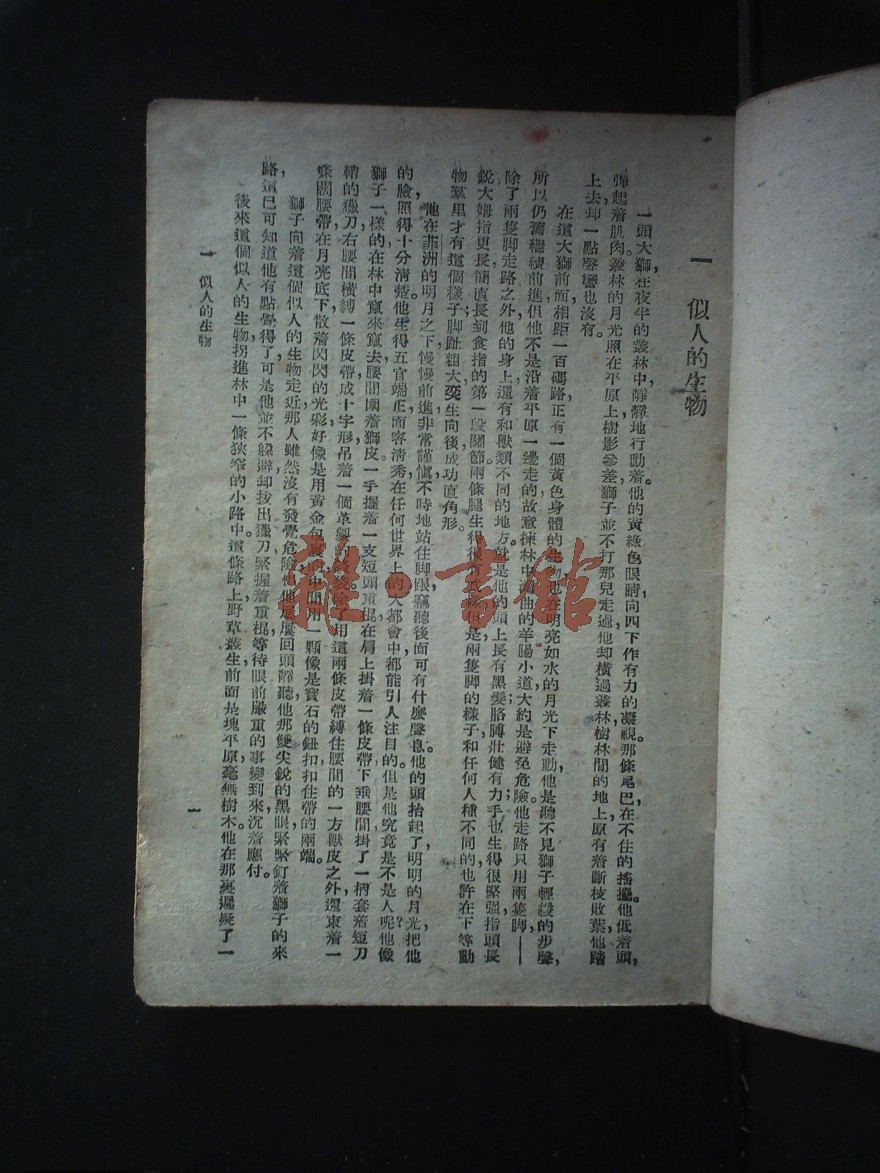 一 似人的生物
一頭大獅,在夜半的叢林中,靜靜地行動着。他的黃綠色眼睛,向四下作有力的凝視。那條尾巴,在不住的搖擺。他低着頭,
彈起着肌肉。叢林的月光,照在平原上,樹影參差。獅子並不打那兒走過,他却橫過叢林。樹林間的地上,原有着斷枝敗葉,他踏
上去,却一點聲響也沒有。
在這大獅前面,相距一百碼路,正有一個黃色身體的生物,也在明亮如水的月光下走動。他是聽不見獅子輕緩的步聲,
所以仍舊繼續前進。但他不是沿着平原一邊走的,故意揀林中灣曲的羊腸小道,大約是避免危險。他走路只用兩隻脚——
除了兩隻脚走路之外,他的身上還有和獸類不同的地方,就是他的頭上長有黑髮,胳膊壯健有力;手也生得很堅强,指頭長
銳,大姆指更長,簡直長到食指的第一段關節。兩條腿生得很 但是兩隻脚的樣子,和任何人種不同的,也許在下等動
物羣里才有這個樣子;脚趾粗大,突生向後,成功直角形。
他在菲洲的明月之下慢慢前進,非常謹慎,不時地站住脚跟,竊聽後面可有什麼聲息。他的頭抬起了,明明的月光,把他
的臉照得十分清楚。他生得五官端正,面容清秀,在任何世界上的大都會中,都能引人注目的。但是他究竟是不是人呢?他像
獅子一樣的在林中竄來竄去,腰間圍着獅皮,一手握着一支短頭重棍,在肩上掛着一條皮帶,下垂腰間,掛了一柄套着短刀
鞘的獵刀,右腰間橫縛一條皮帶,成十字形,吊着一個革製的 除了用這兩條皮帶縛住腰間的一方獸皮之外,還束着一
條闊腰帶,在月亮底下散着閃閃的光彩,好像是用黃金包 的,中間用一顆像是寶石的鈕扣,扣住帶的兩端。
獅子向着這個似人的生物走近,那人雖然沒有發覺危險,但他屢屢回頭靜聽,他那雙尖銳的黑眼,緊緊釘着獅子的來
路,這已可知道他有點覺得了。可是他並不躲避,却拔出獵刀,緊握着重棍,等待眼前嚴重的事變到來,沉着應付。
後來,這個似人的生物,拐進林中一條狹窄的小路中,這條路上野草叢生,前面是塊平原,毫無樹木。他在那裏遲疑了一
一 似人的生物
一
雜·書館